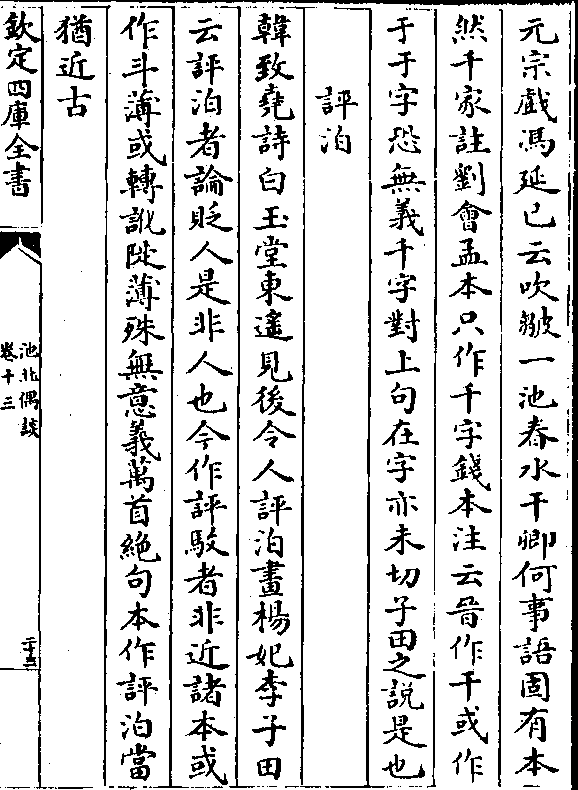 元宗戲馮延已云吹皺一池春水干卿何事語固有本
然千家註劉㑹孟本只作千字錢本注云晉作干或作
于于字恐無義千字對上句在字亦未切子田之説是也
評泊
韓致堯詩白玉堂東遙見後令人評泊畫楊妃李子田
云評泊者論貶人是非人也今作評駮者非近諸本或
作斗薄或轉訛陡薄殊無意義萬首絶句本作評泊當
猶近古
欽定四庫全書
池北偶談
卷十三
二十三